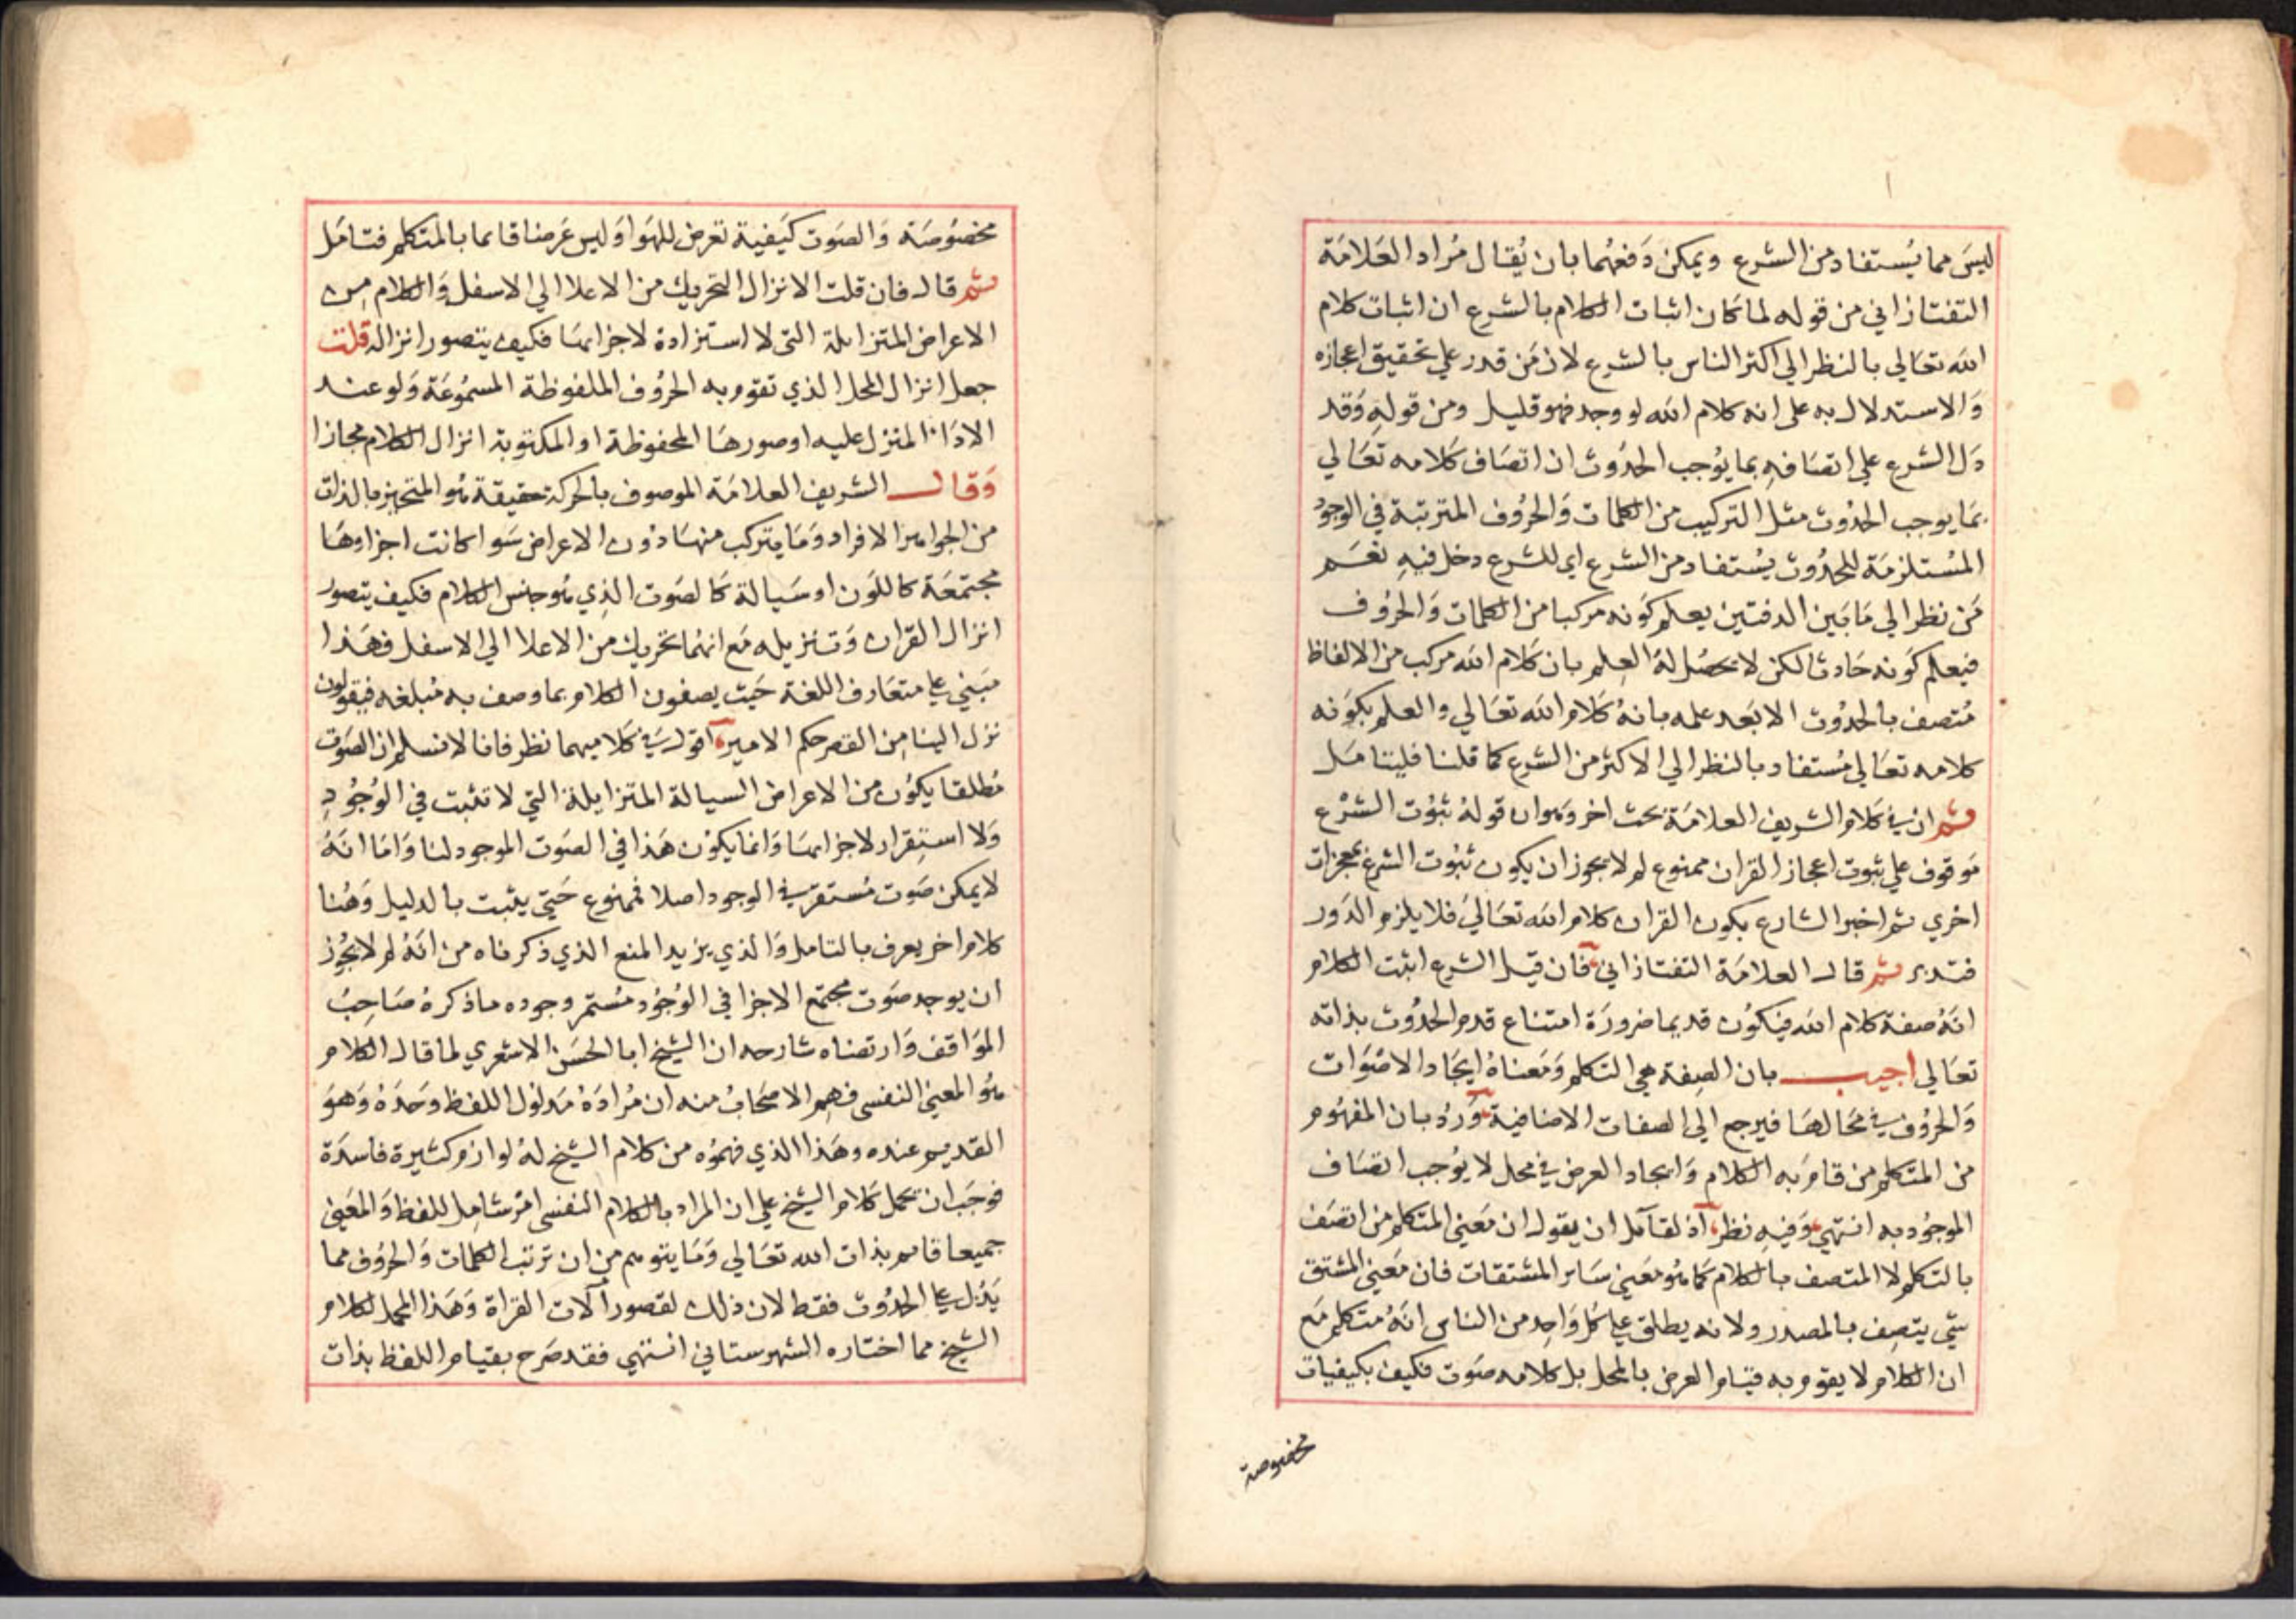 ليسَ مما يُستفاد من الشرع ويمكن دَفعهُما بان يُقال مُراد العَلامَة
التفتازاني من قوله لما كان اثبات الكلام بالشرع ان اثبات كلام
الله تعَالي بالنظر الي اكثر الناس بالشرع لان مَن قدر علي تحقيق اعجازه
وَالاستدلال به على انه كلام الله لو وجد فهو قليل ومن قولهِ وَقد
دَل الشرع علي اتصَافهِ بما يوُجب الحدُوث ان اتصَاف كلامه تعَالي
بمَا يوجب الحدُوث مثل التركيب من الكلمات وَالحرُوف المترتبة في الوجوُد
المُستلزمَة للحدُوث يسُتفاد من الشرع اي للشرع دخل فيهِ نعَم
مَن نظر الي مَا بَين الدفتين يعلم كوَنه مركبا من الكلمات وَالحرُوف
فيَعلم كوَنه حَادثا لكن لا يحصُل لهُ العِلم بان كَلام الله مركب من الالفاظ
مُتصف بالحدُوث الا بَعد علمه بانهُ كَلام الله تعَالي والعلم بكوَنه
كلامه تعَالي مُستفاد بالنظر الي الاكثر من الشرع كما قلنا فليتامَل
ثم ان في كَلام الشريف العلامَة بحث اخر وَهوان قولهُ ثبوُت الشرْع
مَوقوف علي ثبوت اعجاز القران ممنوع لم لا يجوز ان يكون ثبوت الشرع بمعجزات
اخري ثم اخبر الشارع بكون القران كلام الله تعَاليَ فلا يلزم الدَور
فتدبر ثم قال العلامَة التفتازاني فان قيل الشرع اثبت الكلام
انهُ صفة كلام الله فيكوُن قديما ضرورَة امتناع قدم الحدُوث بذاته
تعَالي اجيب بان الصِفة هي التكلم وَمَعناهُ ايجَاد الاصْوَات
وَالحرُوف في محَالهَا فيرجع الى الصفات الاضافية وَردُ بان المفهُوم
من المتكلم من قام َبه الكلام وَايجاد العرض في محل لا يوُجب اتصَاف
الموجوُد به انتهي وَفيهِ نظر اذ لقائل ان يقول ان مَعني المتكلم من اتصَف
بالتكلم لا المتصف بالكلام كمَا هُو مَعني سَاير المشتقات فان مَعني المشتق
شي يتصِف بالمصدر ولانه يطلق علي كل وَاحِد من الناس انهُ متكلم مَع
ان الكلام لا يقوم به قيام العرض بالمحل بل كلامه صَوت فكيف بكيفيات
مخصوصة
مخصوُصَة وَالصَوت كيَفية تعرض للهَوا وَليس عَرضا قايما بالمتكلم فتامَل
ثم قال فان قلت الانزال التحريك من الاعلا الي الاسفل وَالكلام مِن
الاعراض المتزايلة التى لا استزادة لاجزايهَا فكيف يتصور انزاله قلت
جعل انزال المحل الذي تقوم به الحرُوف الملفوظة المسمُوعَة وَلو عند
الادَاء المنزل عليه او صورهَا المحفوظة او المكتوبة انزال الكلام مجازا
وَقال الشريف العلامَة الموصوف بالحركة حقيقة هُو المتحيز بالذات
من الجواهر الافراد وَمَا يتركب منهَا دوُن الاعراض سَوا كانت اجزاوهَا
مجتمعَة كاللَون او سَيالة كَالصَوت الذِي هُو جنس الكلام فكيف يتصور
انزال القران وَتنزيله مَع انهُما تحريك من الاعلا الي الاسفل فهَذا
مَبني علي متعَارف اللغة حَيث يصفون الكلام بما وصف به مُبلغه فيقولون
نزل الينا مِن القصر حكم الامير اقول في كَلاميهما نظر فانا لا نسلم ان الصَوت
مُطلقا يكوُن من الاعراض السيالة المتزايلة التي لا تثبت في الوُجوُدِ
وَلا استِقرار لاجزايهَا وَانما يكوُن هَذا في الصَوت الموجود لنا وَامَا انهُ
لا يمكن صَوت مُستقر في الوجود اصلا فممنوع حَتي يثبت بالدليل وَهُنا
كلام اخر يعرف بالتامل وَالذي يزيد المنع الذي ذكرناه من انهُ لم لا يجُوز
ان يوجد صَوت مجتمع الاجزا في الوُجوُد مُستمر وجوده ماذكرهُ صَاحِبُ
الموَاقف وَارتضاه شارحه ان الشيخ ابا الحسَن الاشعري لما قال الكلام
هُو المعني النفسى فهم الاصحَابُ منه ان مُرادَهُ مَدلوُل اللفظ وحَدَهُ وَهوَ
القديم عنده وهَذا الذي فهموُه من كلام الشيخ لهُ لوازم كثيرة فاسدَة
فوجَب ان يحمل كَلام الشيخ علي ان المراد بالكلام النفسى امْر شامِل للفظ وَالمعَني
جميعا قايم بذات الله تعَالي وَمَا يتوهم من ان ترتب الكلمات وَالحروُف مما
يَدُل علي الحدُوث فقط لان ذلك لقصور آلات القراة وَهَذا المحمل لكلام
الشيخ مما اختاره الشهرستاني انتهي فقد صَرح بقيام اللفظ بذات